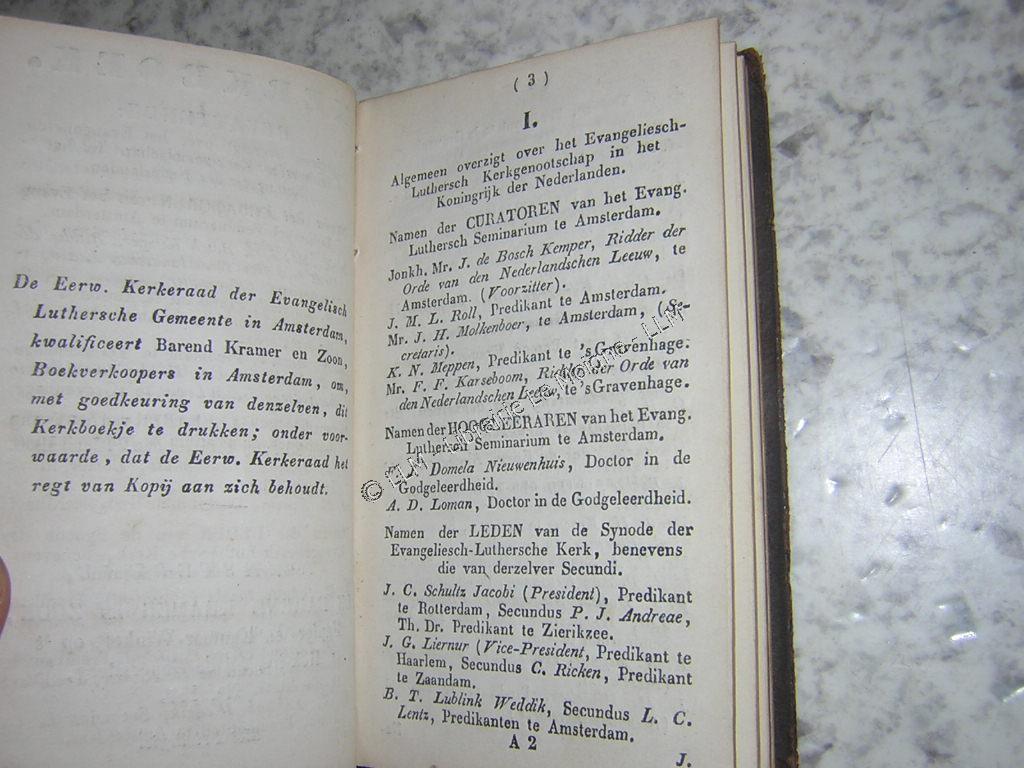 De Eerw. Kerkeraad der Evangelisch
Luthersche Gemeente in Amsterdam,
kwalificeert Barend Kramer en Zoon,
Boekverkoopers in Amsterdam, om,
met goedkeuring van denzelven, dit
Kerkboekje te drukken; onder voor-
waarde, dat de Eerw. Kerkeraad het
regt van Kopij aan zich behoudt.
( 3 )
I.
Algemeen overzigt over het Evangeliesch-
Luthersch Kerkgenootschap in het
Koningrijk der Nederlanden.
Namen der CURATOREN van het Evang.
Luthersch Seminarium te Amsterdam.
Jonkh. Mr. J. de Bosch Kemper, Ridder der
Orde van den Nederlandschen Leeuw, te
Amsterdam. (Voorzitter).
J. M. L. Roll, Predikant te Amsterdam.
Mr. J. H. Molkenboer, te Amsterdam, (Se-
cretaris).
K. N. Meppen, Predikant te 'sGravenhage.
Mr. F. F. Karseboom, Ridder der Orde van
den Nederlandschen Leeuw, te 'sGravenhage.
Namen der HOOGLEERAREN van het Evang.
Luthersch Seminarium te Amsterdam.
Domela Nieuwenhuis, Doctor in de
Godgeleerdheid.
A. D. Loman, Doctor in de Godgeleerdheid.
Namen der LEDEN van de Synode der
Evangeliesch-Luthersche Kerk, benevens
die van derzelver Secundi.
J. C. Schultz Jacobi (President), Predikant
te Rotterdam, Secundus P. J. Andreae,
Th. Dr. Predikant te Zierikzee.
J. G. Liernur (Vice-President, Predikant te
Haarlem, Secundus C. Ricken, Predikant
te Zaandam.
B. T. Lublink Weddik, Secundus L. C.
Lentz, Predikanten te Amsterdam.
A 2
J.
© ELM - Librairie Le Moïne - LLM